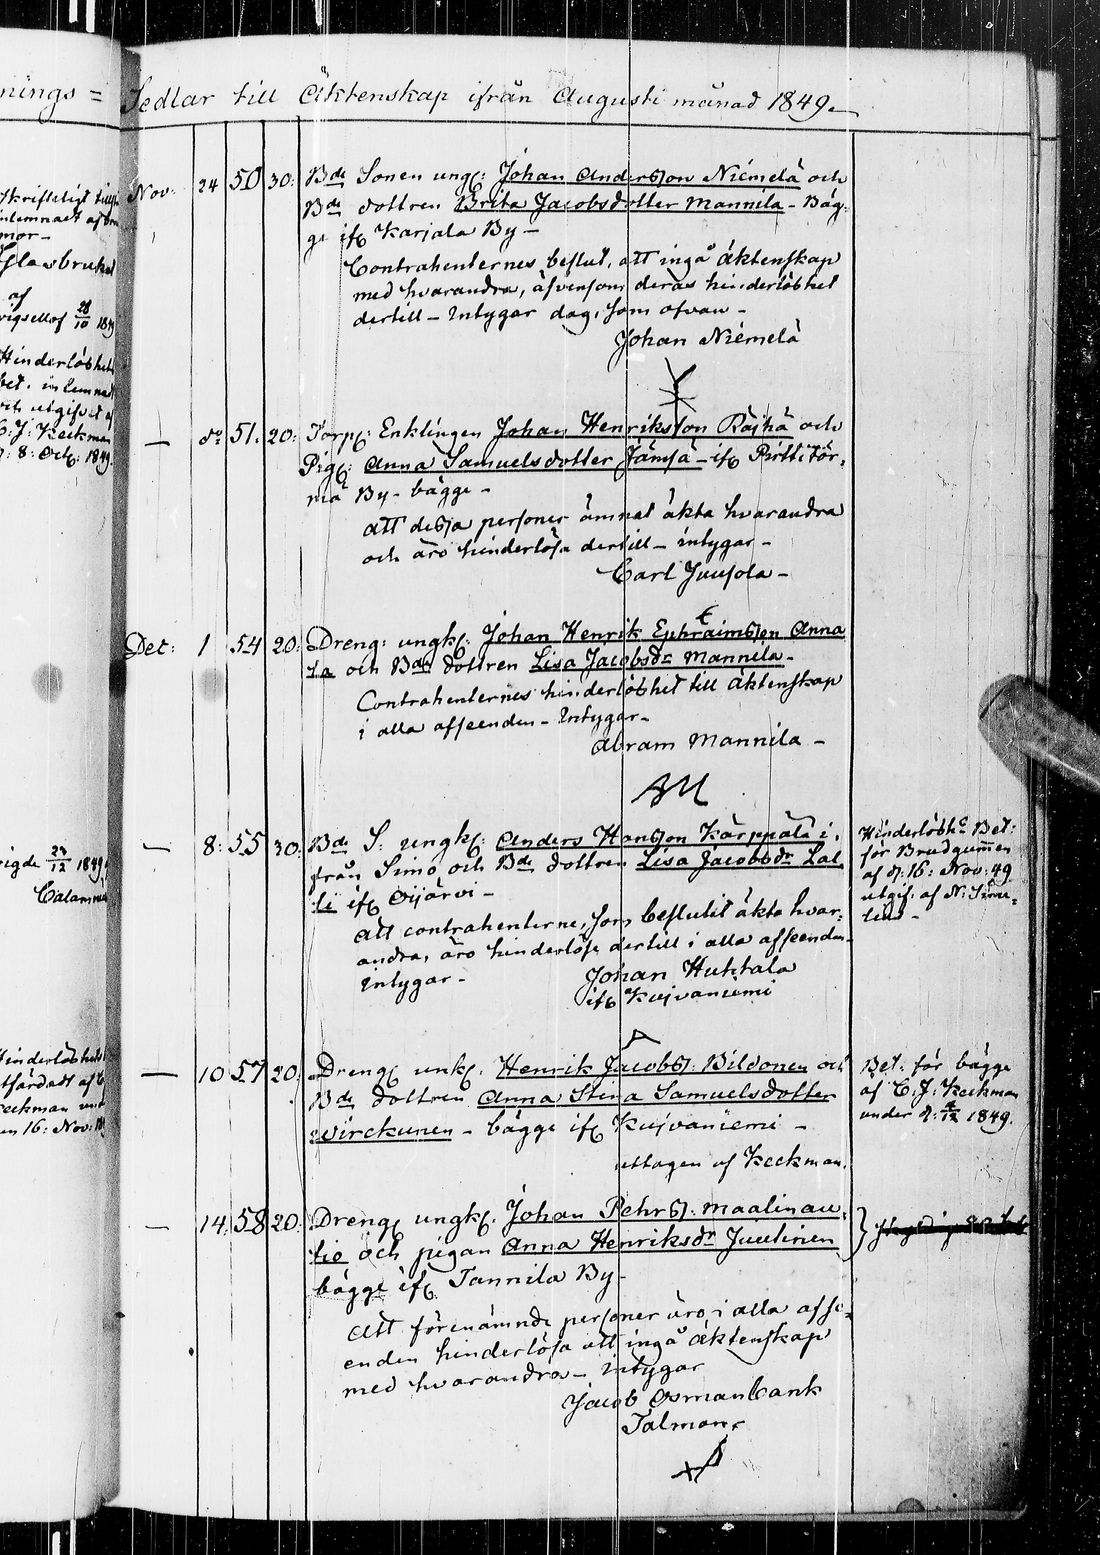 nings = Sedlar till Äktenskap ifrån Augusti månad 1849.
Skrifteligt
inlemnadt af
mor –
Glasbruket
af
28/10 1849
Hinderlöshets
bet. inlemnad
och utgifvet af
C. J. Keckman
d: 8: Oct: 1849.
23/12 1849
Calamnius
Hinderlöshets
utfärdadt af C
Keckman
en 16: Nov:
Nov: 24 50 30: Bde Sonen ungk: Johan Andersson Niémelä och
Bde dottren Brita Jacobsdotter Mannila – Bäg-
ge ifr. Karjala By –
Contrahenternes beslut, att ingå äktenskap
med hvarandra, äfvensom deras hinderlöshet
dertill – Intygar dag, som ofvan –
Johan Niémelä
– do 51. 20: Torp: Enklingen Johan Henriksson Räjhä och
Pig: Anna Samuelsdotter Jämsä – ifr. Pirttitör-
mä By – bägge –
Att dessa personer ämnat äkta hvarandra
och äro hinderlösa dertill – intygar –
Carl Juusola –
Dec: 1 54 20: Dreng: ungk: Johan Henrik Ephraimsson Anna
la och Bde dottren Lisa Jacobsdr Mannila –
Contrahenternes hinderlöshet till äktenskap
i alla afseenden – Intygar –
Abram Mannila –
AM
– 8: 55 30: Bde S. ungk: Anders Hansson Kärppälä i,
från Simo och Bde dottren Lisa Jacobsdr Lal
li ifr. Oijärvi –
Att contrahenterne, som beslutit äkta hvar-
andra, äro hinderlöse dertill i alla afseenden –
intygar –
Johan Huttala
ifr. Kuivaniemi
Hinderlöshs Bet:
för Brudgummen
af d: 16: Nov: 49
utgif: af N: Sime-
lius –
– 10 57 20: Dreng unk: Henrik Jacobss: Bildonen och
Bde dottren Anna Stina Samuelsdotter
Wirckunen – bägge ifr. Kuivaniemi –
uttagen af Keckman.
Bet: för bägge
af C: J: Keckman
under d: 4/12 1849.
– 14. 58 20: Dreng ungk: Johan Pehrss: Maalinau-
tio och pigan Anna Henriksdr Juutinen
bägge ifr. Tannila By –
Att förenämnde personer äro i alla afse-
enden hinderlösa att ingå äktenskap
med hvarandra – intygar
Jacob Osmanbank
Talman